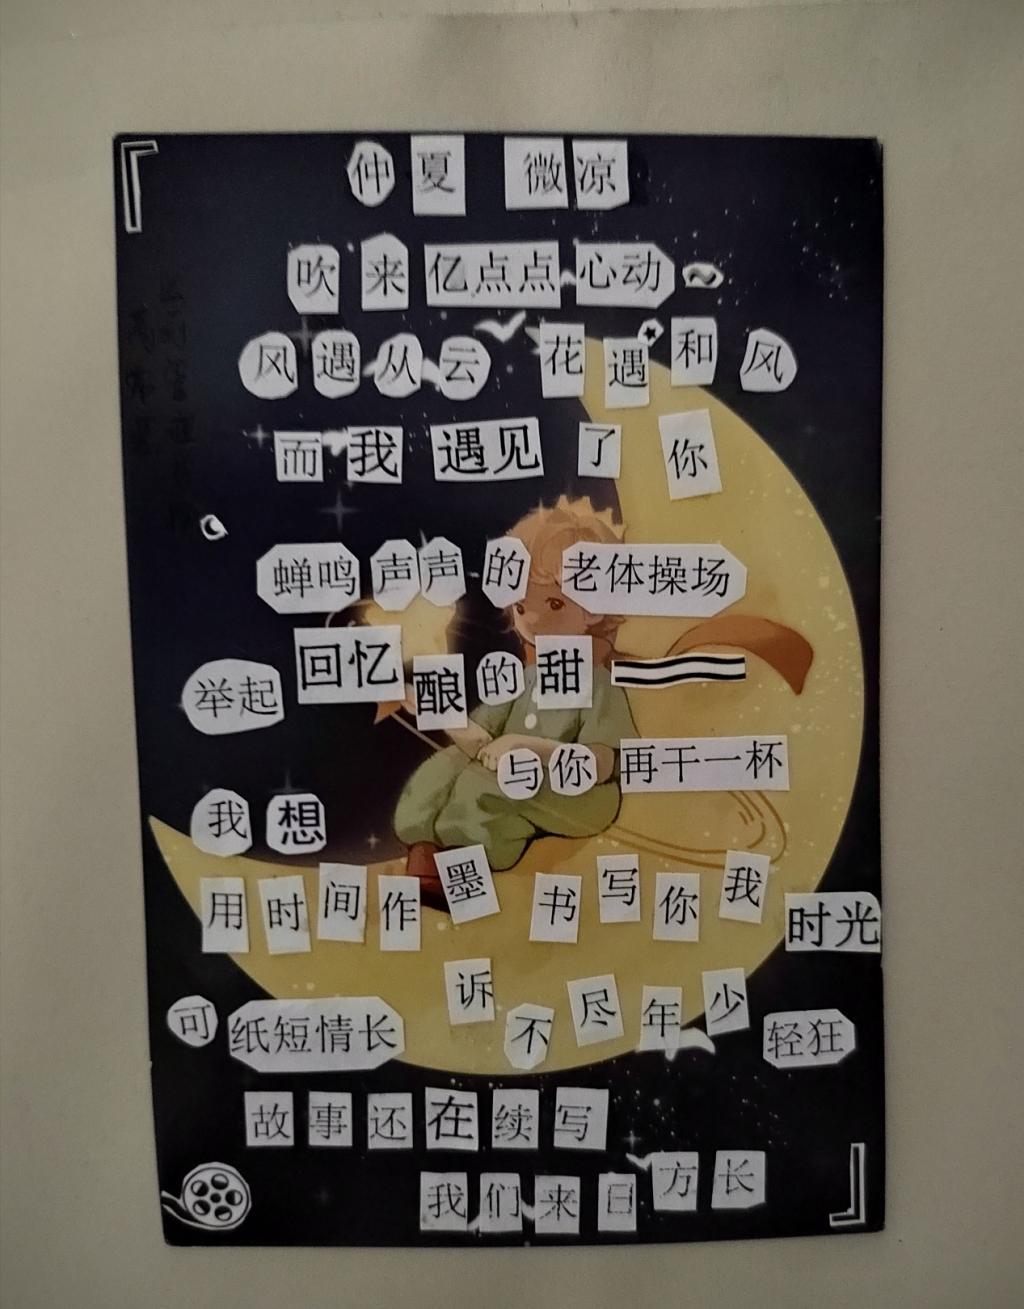 『
仲夏 微凉
吹来亿点点心动~
风遇从云 花遇和风
而我遇见了你
蝉鸣声声的老体操场
举起回忆酿的甜
与你再干一杯
我想
用时间作墨 书写你我时光
可纸短情长 诉不尽年少轻狂
故事还在续写
我们来日方长
』